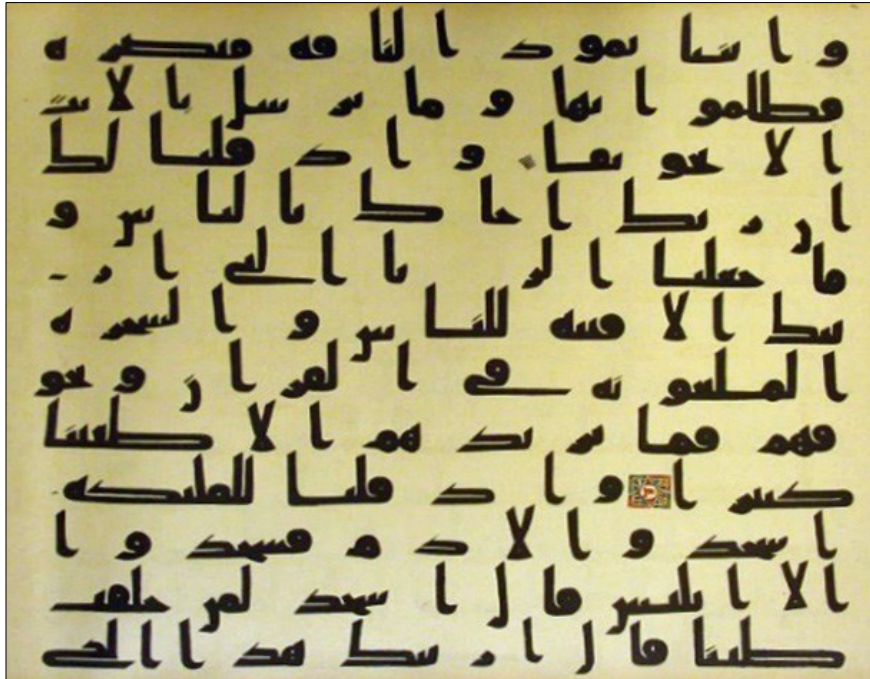 واتينا ثمود الناقه مبصره
فظلموا بها وما نرسل بالايت
الا تخويفا واذ قلنا لك
ان ربك احاط بالناس و
ما جعلنا الريا التي ار
ينك الا فتنه للناس والشجره
الملعونه في القران ونخو
فهم فما يزيدهم الا طغينا
كبيرا واذ قلنا للمليكه
اسجدوا لادم فسجدوا
الا ابليس قال اسجد لمن خلقت
طينا قال اريتك هذا الذي